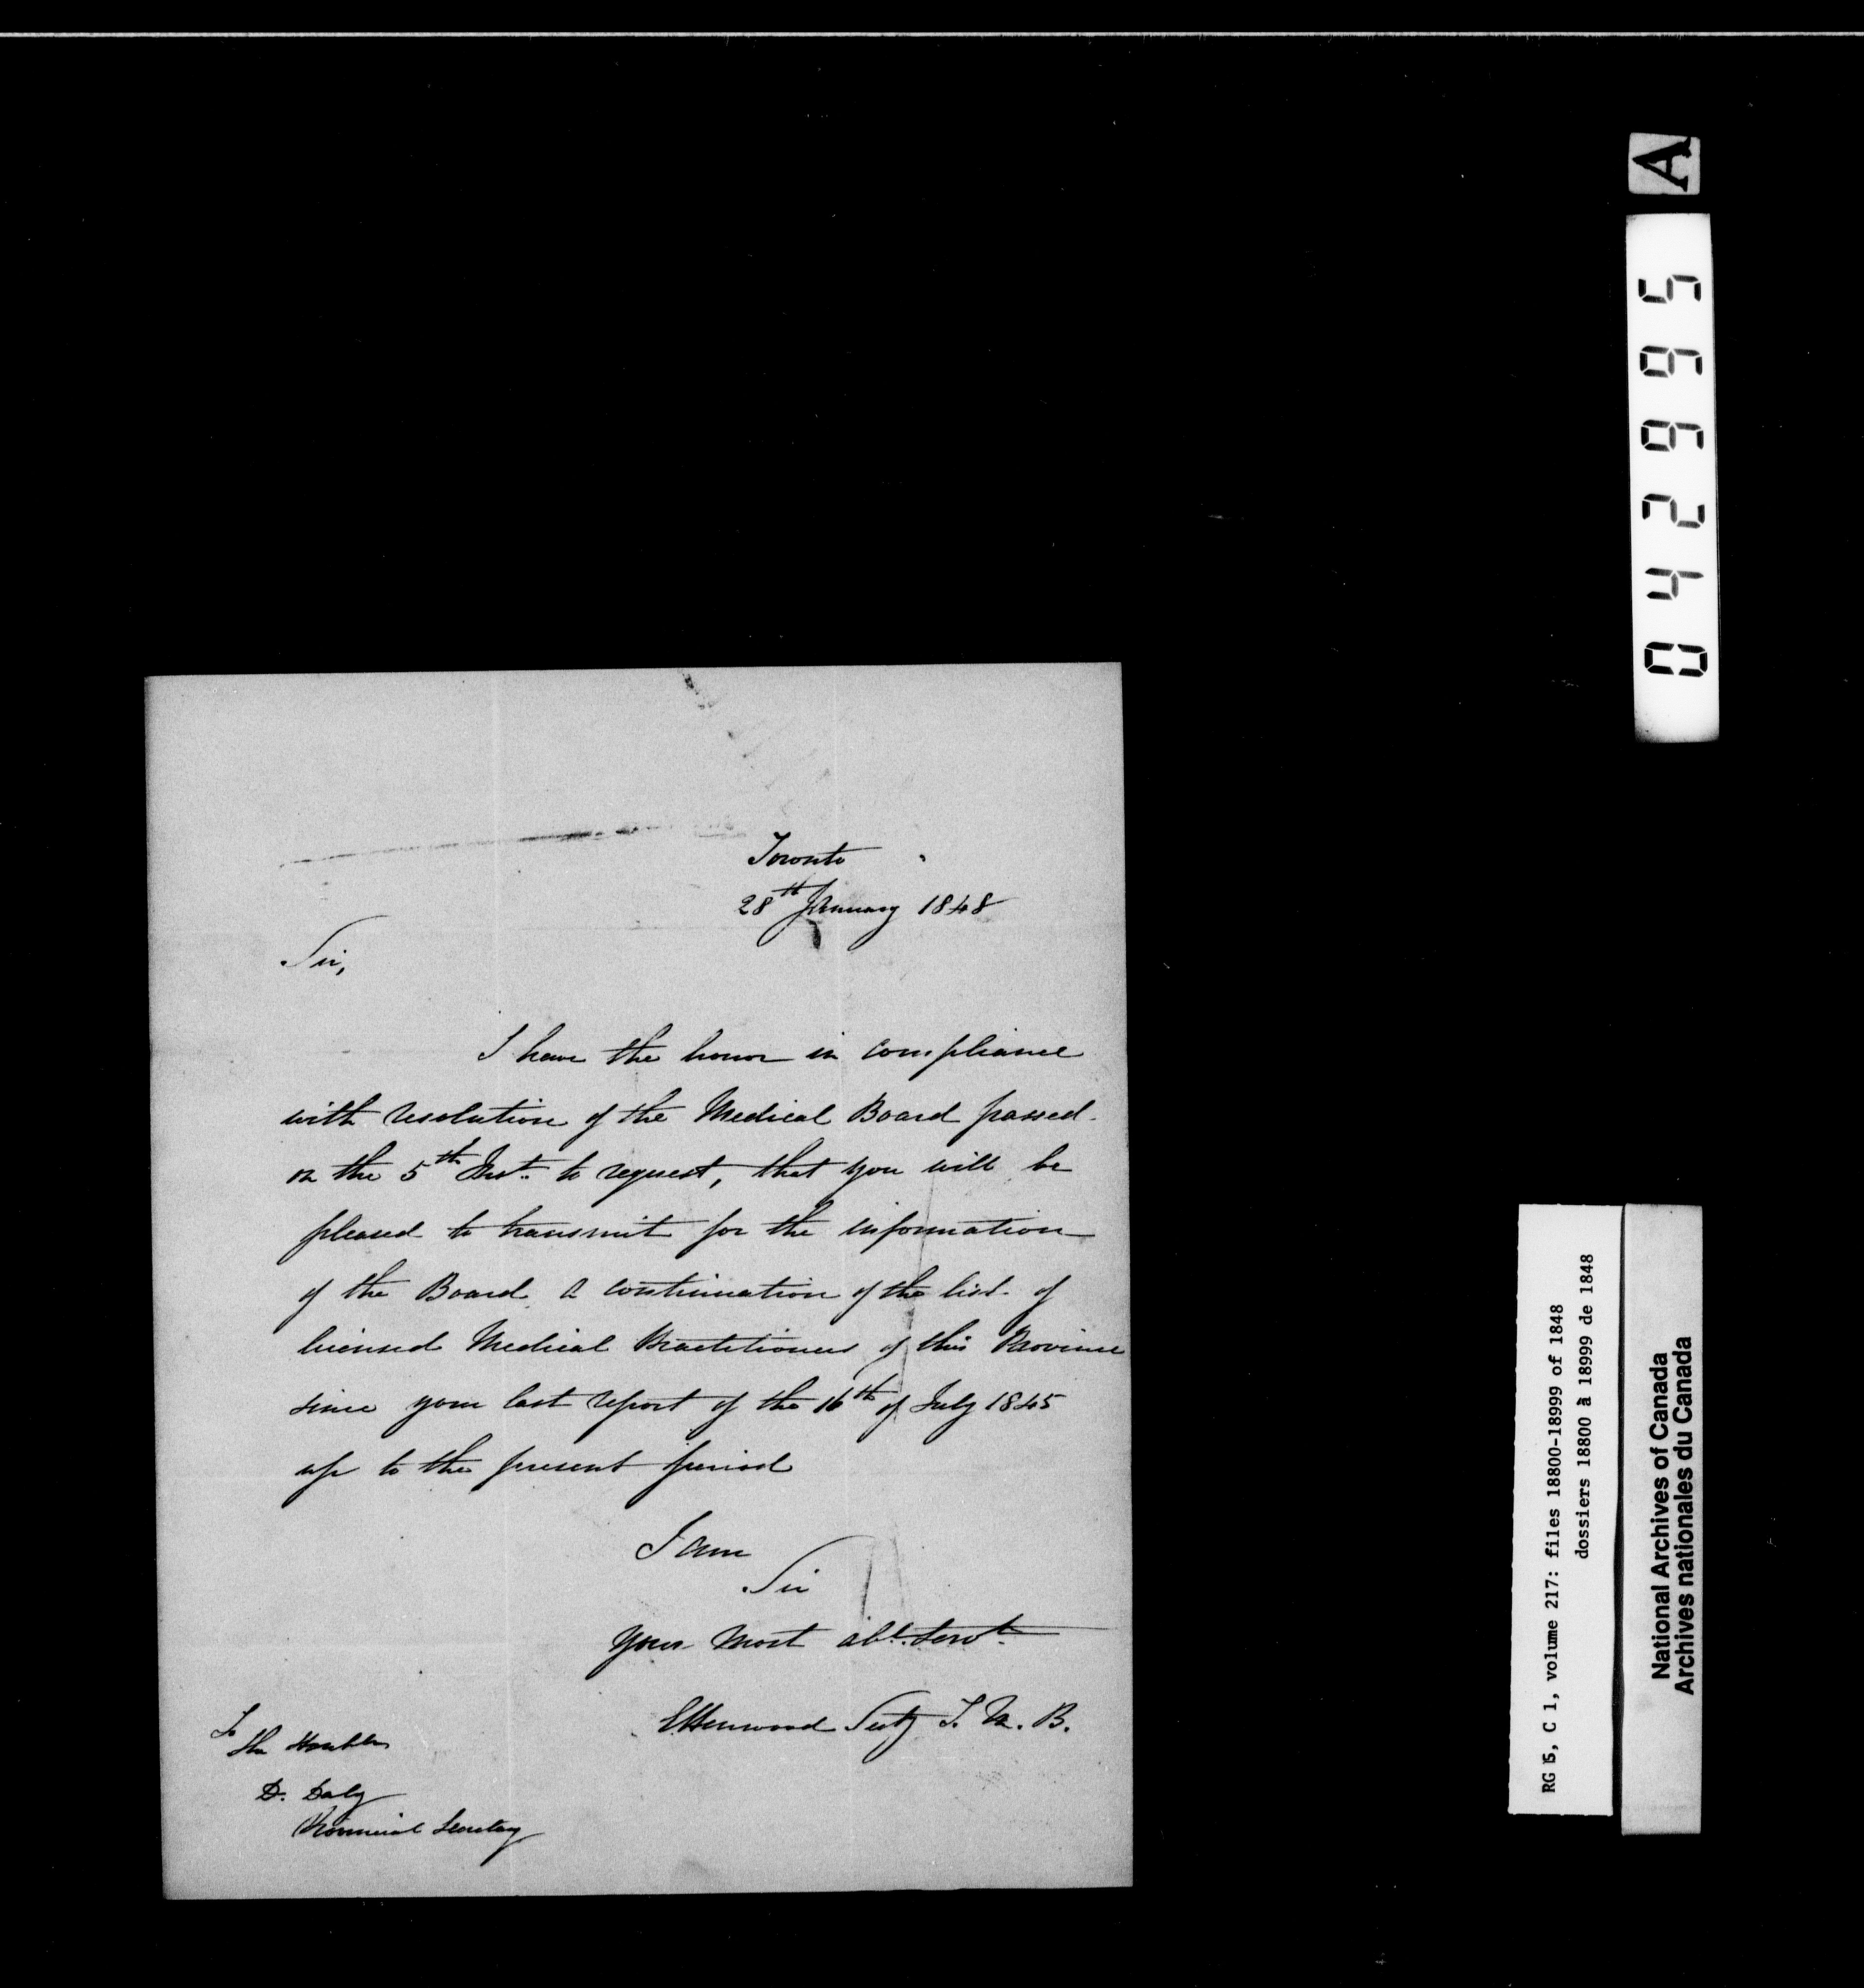 Toronto
28th January 1848
Sir,
I have the honor in compliance
with resolution of the Medical Board passed
on the 5th Inst. to request, that you will be
pleased to transmit for the information
of the Board a continuation of the list of
licensed Medical Practitioners of this Province
since your last report of the 16th of July 1845
up to the present period
I am
Sir
Your most obt. Servt.
E Henwood Secty T. M. B.
To
The Honble
D. Daly
Provincial Secretary
A
042665
RG 5, C 1, volume 217: files 18800-18999 of 1848
dossiers 18800 à 18999 de 1848
National Archives of Canada
Archives nationales du Canada